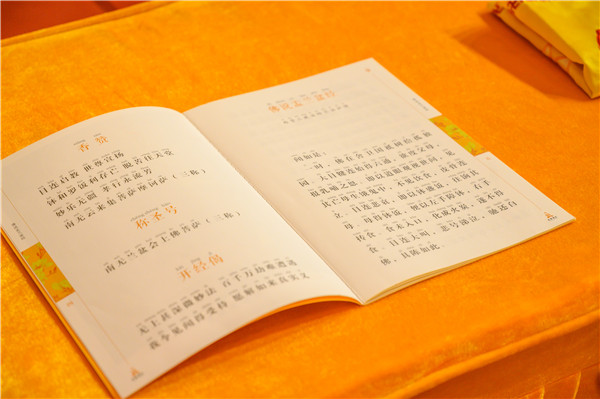 香 赞
目连启教 世尊宣扬
和罗饭利存亡 脱苦往天堂
妙乐无疆 孝行永流芳
南无云来集菩萨摩诃萨（三称）
称圣号
南无兰盆会上佛菩萨（三称）
开经偈
无上甚深微妙法 百千万劫难遭遇
我今见闻得受持 愿解如来真实义
佛说盂兰盆经
闻如是：
一时，佛在舍卫国祇树给孤独
园。大目犍连始得六通，欲度父母，
报乳哺之恩，即以道眼观视世间，见
其亡母生饿鬼中，不见饮食，皮骨连
立。目连悲哀，即以钵盛饭，往饷其
母。母得钵饭，便以左手障钵，右手
抟食，食未入口，化成火炭，遂不得
食。目连大叫，悲号涕泣，驰还白
佛，具陈如此。